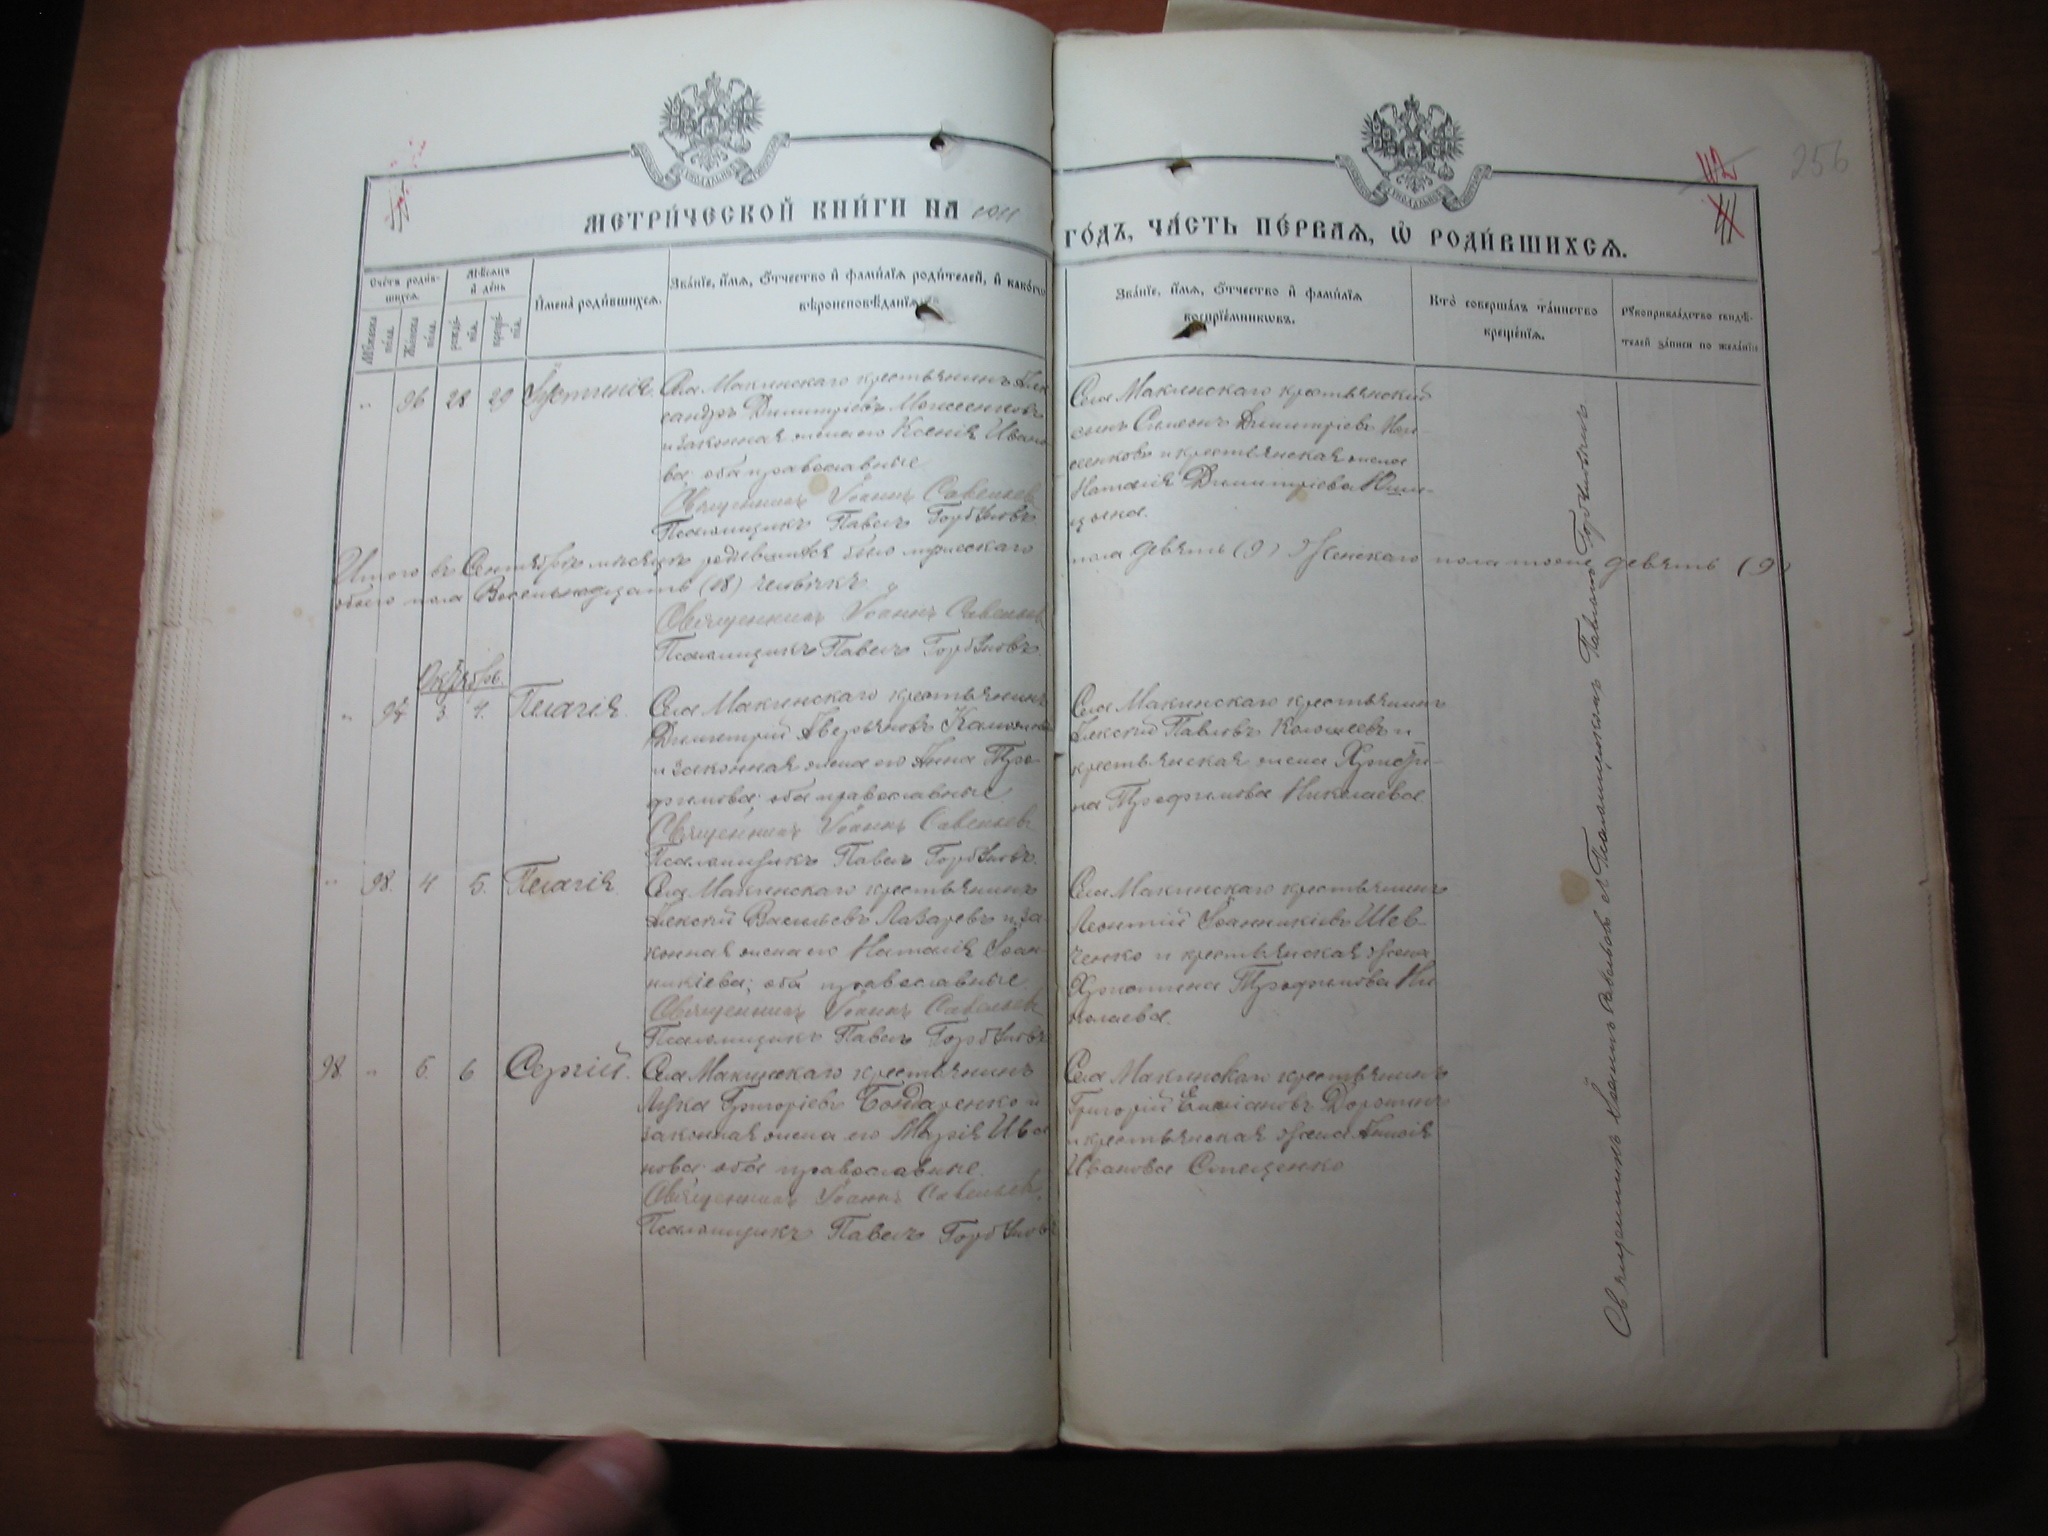 МЕТРИ́ЧЕСКОЙ КНИ́ГИ НА 1911
ГО́ДЪ, ЧА́СТЬ ПЕ́РВАЯ, Ѡ҆ РОДИ́ВШИХСЯ.
256
Сче́тъ роди́в-
шихся.
Мѣ́сяцъ
и҆ де́нь
Му́жеска по́ла.
Же́нска по́ла.
рожде́-
нїя.
креще́-
нїя.
И҆мена̀ роди́вшихся.
Зва́нїе, и҆́мя, ѻ҆́тчество и҆ фами́лїя роди́телей, и҆ како́гѡ
вѣроисповѣ́данїя.
Зва́нїе, и҆́мя, ѻ҆́тчество и҆ фами́лїя
воспрїе́мникѡвъ.
Кто̀ соверша́лъ та́инство
креще́нїя.
Рꙋкоприкла́дство свидѣ́-
телей за́писи по жела́нїю
" 96 28 29 Іустинія. Села Макинскаго крестьянинъ Алек
сандръ Димитріевъ Моисеенковъ
и законная жена его Ксенія Ивано
ва; оба православные.
Священникъ Іоаннъ Савельевъ
Псаломщикъ Павелъ Горбуновъ
Села Макинскаго крестьянскій
сынъ Симеонъ Димитріевъ Мои-
сеенковъ и крестьянская жена
Наталія Димитріева
Итого въ Сентябрѣ мѣсяцѣ родившихся было мужескаго
пола девять (9) Женскаго пола тоже девять (9)
обоего пола Восемьнадцать (18) человѣкъ.
Священникъ Іоаннъ Савельевъ
Псаломщикъ Павелъ Горбуновъ.
Октябрь.
" 97 3 4. Пелагія. Села Макинскаго крестьянинъ
Димитрій Аверьяновъ
и законная жена его Анна Тро-
фимова; оба православные.
Священникъ Іоаннъ Савельевъ
Псаломщикъ Павелъ Горбуновъ.
Села Макинскаго крестьянинъ
Алексій Павловъ Колошеевъ и
крестьянская жена Христи-
на Трофимова Николаева
" 98. 4 5. Пелагія. Села Макинскаго крестьянинъ
Алексій Васильевъ Лазаревъ и за-
конная жена его Наталія Іоан-
никіева; оба православные.
Священникъ Іоаннъ Савельевъ
Псаломщикъ Павелъ Горбуновъ
Села Макинскаго крестьянинъ
Леонтій Іоанникіевъ Шев-
ченко и крестьянская жена
Христина Трофимова Ни-
колаева.
98 " 5. 6 Сергій. Села Макинскаго крестьянинъ
Лука Григоріевъ Бондаренко и
законная жена его Марія Ива
нова; оба православные.
Священникъ Іоаннъ Савельевъ.
Псаломщикъ Павелъ Горбуновъ
Села Макинскаго крестьянинъ
Григорій Емиліановъ Дорошинъ
и крестьянская жена
Ивановна Стеценко
Священникъ Іоаннъ Савельевъ съ Псаломщикомъ Павломъ Горбуновымъ